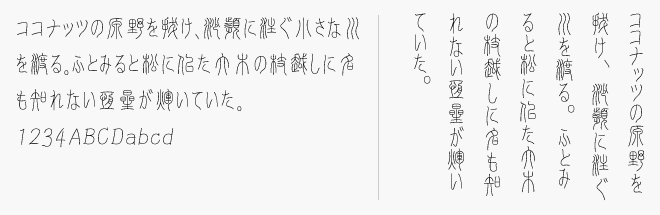 ココナッツの原野を駆け、に注ぐ小さな川
を渡る。ふとみると松に似た大木の枝越しに名
も知れない星が輝いていた。
1234ABCDabcd
ココナッツの原野を
駆け、に注ぐ
川を渡る。ふとみ
ると松に似た大木
の枝越しに名も知
れない星が輝い
ていた。